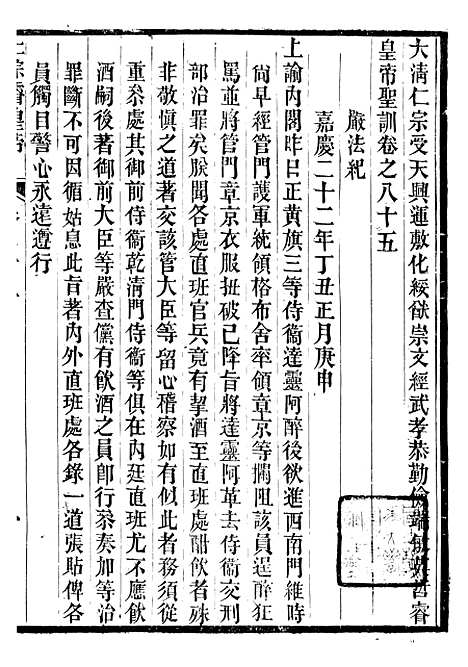 大清仁宗受天興運敷化綏猷崇文經武孝恭勤儉端敏英哲睿
皇帝聖訓卷之八十五
嚴法紀
嘉慶二十二年丁丑正月庚申
上諭內閣昨日正黃旗三等侍衞達靈阿醉後欲進西南門維時
尙早經管門護軍統領格布舍率領章京等攔阻該員逞醉狂
罵並將管門章京衣服扯破已降旨將達靈阿革去侍衞交刑
部治罪矣朕聞各處直班官兵竟有挈酒至直班處酣飮者殊
非敬愼之道著交該管大臣等留心稽察如有似此者務須從
重叅處其御前侍衞乾淸門侍衞等俱在內廷直班尤不應飮
酒嗣後著御前大臣等嚴查儻有飮酒之員卽行叅奏加等治
罪斷不可因循姑息此旨著內外直班處各錄一道張貼俾各
員觸目警心永遠遵行
仁宗睿皇帝